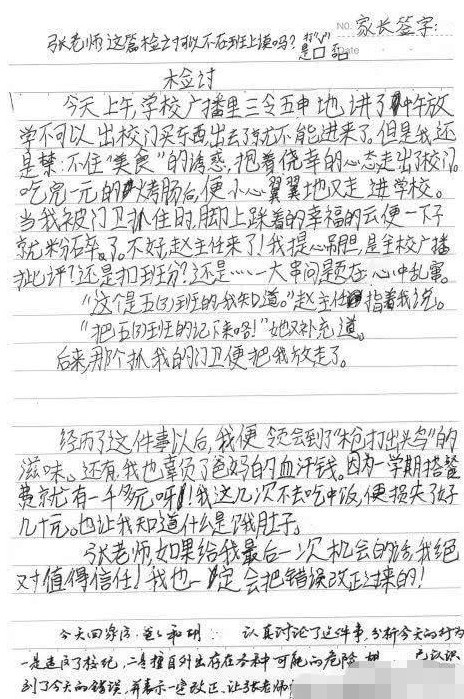 NO. 家长签字:
张老师这篇检讨可以不在班上读吗? 打"√"
是□ 否□ Date
检讨
今天上午,学校广播里三令五申地讲了中午放
学不可以出校门买东西,出去了就不能进来了。但是我还
是禁不住"美食"的诱惑,抱着侥幸的心态走出了校门。
吃完一元的烤肠后,便小心翼翼地又走进学校。
当我被门卫抓住时,脚上踩着的幸福的云便一下子
就粉碎了。不好,赵主任来了!我提心吊胆,是全校广播
批评?还是扣班分?还是……一大串问题在心中乱窜。
"这个是五(3)班的,我知道。"赵主任指着我说。
"把五(3)班的记下来咯!"她又补充道。
后来,那个抓我的门卫便把我放走了。
经历了这件事以后,我便领会到了"枪打出头鸟"的
滋味。还有,我也辜负了爸妈的血汗钱。因为一学期搭餐
费就有一千多元呀!我这几次不去吃中饭,便损失了好
几十元。也让我知道什么是饿肚子。
张老师,如果给我最后一次机会的话,我绝
对值得信任!我也一定会把错误改正过来的!
今天回家后,爸爸和胡 认真讨论了这件事,分析今天的行为
一是违反了校纪,二是擅自外出存在各种可能的危险 胡 已认识
到了今天的错误,并表示一定改正,让张老师